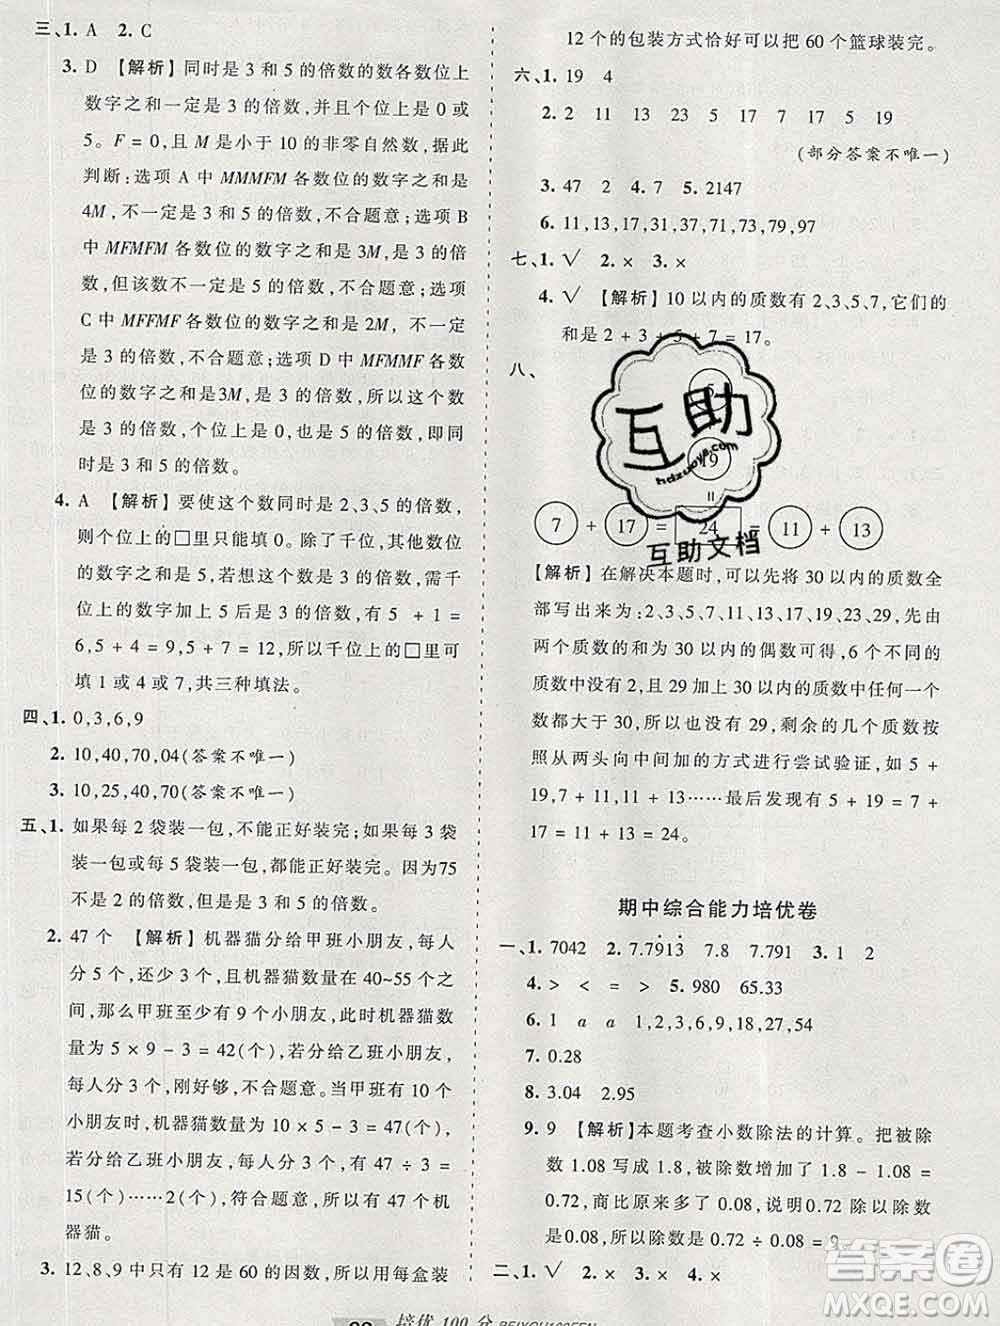 三、1. A 2. C
3. D 【解析】同时是 3 和 5 的倍数的数各数位上
数字之和一定是 3 的倍数，并且个位上是 0 或
5。F = 0，又因为 M 是小于 10 的非零自然数，据此
判断：选项 A 中 MMMFM 各数位的数字之和是
4M，不一定是 3 和 5 的倍数，不合题意；选项 B
中 MFMFM 各数位的数字之和是 3M，是 3 的倍
数，但该数不一定是 5 的倍数，不合题意；选项
C 中 MFFMF 各数位的数字之和是 2M，不一定
是 3 的倍数，不合题意；选项 D 中 MFMMF 各数
位的数字之和是 3M，是 3 的倍数，且个位数字
是 0，所以这个数是 3 的倍数，也是 5 的倍数，即同
时是 3 和 5 的倍数。
4. A 【解析】要使这个数同时是 2、3、5 的倍数，
则个位上的□里只能填 0。除了千位，其他数位
的数字之和为 5，若想这个数是 3 的倍数，需千
位上的数字加上 5 后是 3 的倍数，有 5 + 1 =
6，5 + 4 = 9，5 + 7 = 12，所以千位上的□里可
填 1 或 4 或 7，共三种填法。
四、1. 0,3,6,9
2. 10,40,70,04(答案不唯一)
3. 10,25,40,70(答案不唯一)
五、1. 如果每 2 袋装一包，不能正好装完；如果每 3 袋
装一包或每 5 袋装一包，都能正好装完。因为75
不是 2 的倍数，是 3 和 5 的倍数。
2. 47 个 【解析】机器猫分给甲班小朋友，每人
分 5 个，还少 3 个，且机器猫的数量在 40~55 个之
间，那么甲班至少有 9 个小朋友，此时机器猫的数
量为 5 × 9 - 3 = 42(个)，若分给乙班小朋友，
每人分 3 个，刚好够，不合题意。当甲班有 10 个
小朋友时，机器猫数量为 10 × 5 - 3 = 47(个)，
若分给乙班小朋友，每人分 3 个，有 47 ÷ 3 =
15(个)……2(个)，符合题意，所以有 47 个机
器猫。
3. 12、8、9 中只有 12 是 60 的因数，所以用每盒装
12 个的包装方式恰好可以把 60 个篮球装完。
六、1. 19 4
2. 2 11 13 23 5 17 7 17 5 19
(部分答案不唯一)
3. 47 2 4. 7 5. 2147
6. 11,13,17,31,37,71,73,79,97
七、1. √ 2. × 3. ×
4. √ 【解析】10 以内的质数有 2、3、5、7，它们的
和是 2 + 3 + 5 + 7 = 17。
八、
5
19
=
7 + 17 = 24 = 11 + 13
互助
hdzuoye.com
互助文档
【解析】在解决本题时，可以先将 30 以内的质数全
部写出来为：2、3、5、7、11、13、17、19、23、29，先由
两个质数的和为 30 以内的偶数可知，6 个圆中的
质数中没有 2，又因为 29 与 30 以内的质数中任何一个
数都大于 30，所以也没有 29，剩余的几个质数按
照从两头向中间加的方式进行尝试验证，如 5 +
19，7 + 17，11 + 13……最后发现有 5 + 19 = 7 +
17 = 11 + 13 = 24。
期中综合能力培优卷
一、1. 7042 2. 7.7̇91̇3̇ 7.8 7.791 3. 1 2
4. > < = > 5. 980 65.33
6. 1 a a 1,2,3,6,9,18,27,54
7. 0.28
8. 3.04 2.95
9. 9 【解析】本题考查小数除法的计算。把被除
数 1.08 写成 1.8，被除数增加了 1.8 - 1.08 =
0.72，商比原来多了 0.08，说明0.72 除以除数
是0.08，所以除数是 0.72 ÷ 0.08 = 9。
二、1. √ 2. × 3. × 4. ×
培优 100 分
答案圈
MXQE.COM